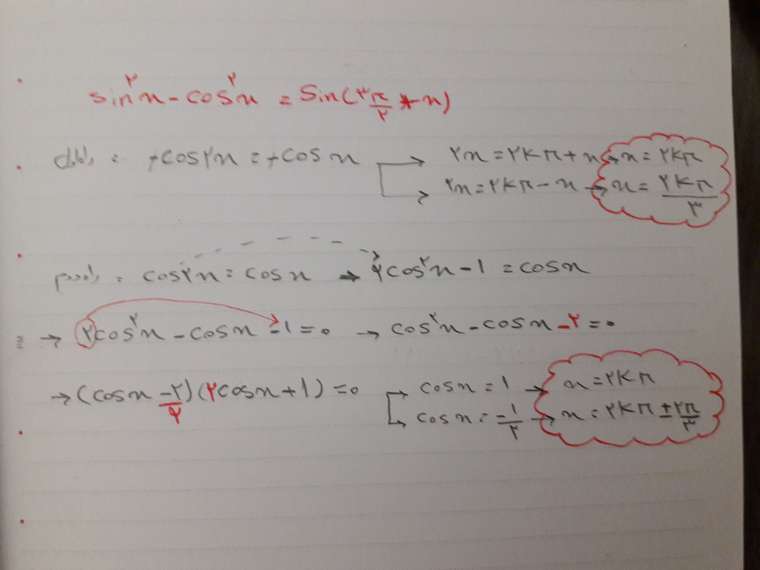 sin²x - cos²x = sin(۳π/۲ + x)
راه اول : -cos۲x = -cos x → ۲x = ۲kπ + x → x = ۲kπ
→ ۲x = ۲kπ - x → x = ۲kπ/۳
راه دوم : cos۲x = cos x → ۲cos²x - 1 = cosx
→ ۲cos²x - cosx - 1 = 0 → cos²x - cosx - ۲ = 0
→ (cosx - ۲/۲)(۲cosx + 1) = 0 → cosx = 1 → x = ۲kπ
→ cosx = -1/۲ → x = ۲kπ ± ۲π/۳